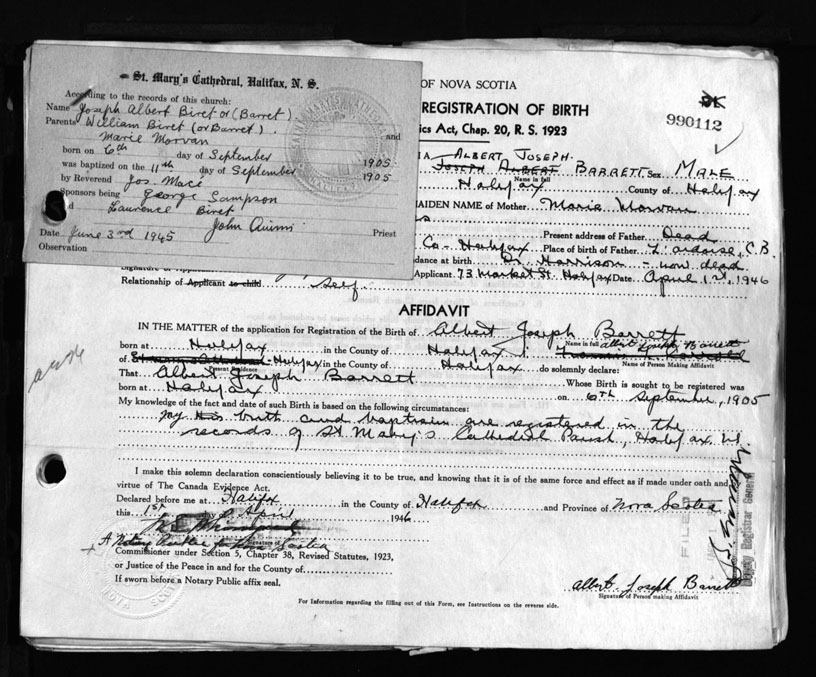 St. Mary's Cathedral, Halifax, N. S.
According to the records of this church:
Name Joseph Albert Biret or (Barret)
Parents William Biret (or Barret). and
Marie Morvan
born on 6th day of September 1905
was baptized on the 11th day of September 1905
by Reverend Jos. Macé
Sponsors being George Sampson
Laurence Biret
John Quinn Priest
Date June 3rd 1945
Observation
OF NOVA SCOTIA
REGISTRATION OF BIRTH
ics Act, Chap. 20, R. S. 1923
990112
ALBERT JOSEPH.
JOSEPH ALBERT BARRETT Sex MALE
Name in full
Halifax County of Halifax
AIDEN NAME of Mother Marie Morvan
Present address of Father Dead
Co - Halifax Place of birth of Father L'ardoise, C.B.
dance at birth Dr. Harrison - now dead
Applicant 73 Market St. Halifax Date April 1st, 1946
Relationship of Applicant to child Self
AFFIDAVIT
IN THE MATTER of the application for Registration of the Birth of Albert Joseph Barrett
Name in full Albert Joseph Barrett
born at Halifax in the County of Halifax I.
of Halifax in the County of Halifax do solemnly declare:
Present Residence Name of Person Making Affidavit
That Albert Joseph Barrett Whose Birth is sought to be registered was
born at Halifax on 6th September, 1905
My knowledge of the fact and date of such Birth is based on the following circumstances:
My His birth and baptism are registered in the
records of St Mary's Cathedral Parish, Halifax, NS
I make this solemn declaration conscientiously believing it to be true, and knowing that it is of the same force and effect as if made under oath and
virtue of The Canada Evidence Act.
Declared before me at Halifax in the County of Halifax and Province of Nova Scotia
this 1st April 1946
Signature of
A Notary Public for Nova Scotia
Commissioner under Section 5, Chapter 38, Revised Statutes, 1923,
or Justice of the Peace in and for the County of
If sworn before a Notary Public affix seal.
Albert Joseph Barrett
Signature of Person making Affidavit
For Information regarding the filling out of this Form, see Instructions on the reverse side.
FILED
Deputy Registrar General